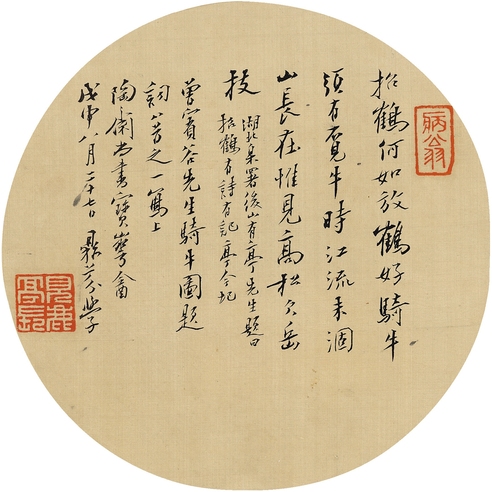 招鶴何如放鶴好騎牛
須有覓牛時江流未涸
山長在惟見高松入岳
枝
湖北臬署後山有亭先生題曰
招鶴有詩有記亭今圮
曾賓谷先生騎牛圖題
詞八首之一寫上
陶齋尚書寶華盦
戊申八月二十七日 鼎芬
病翁